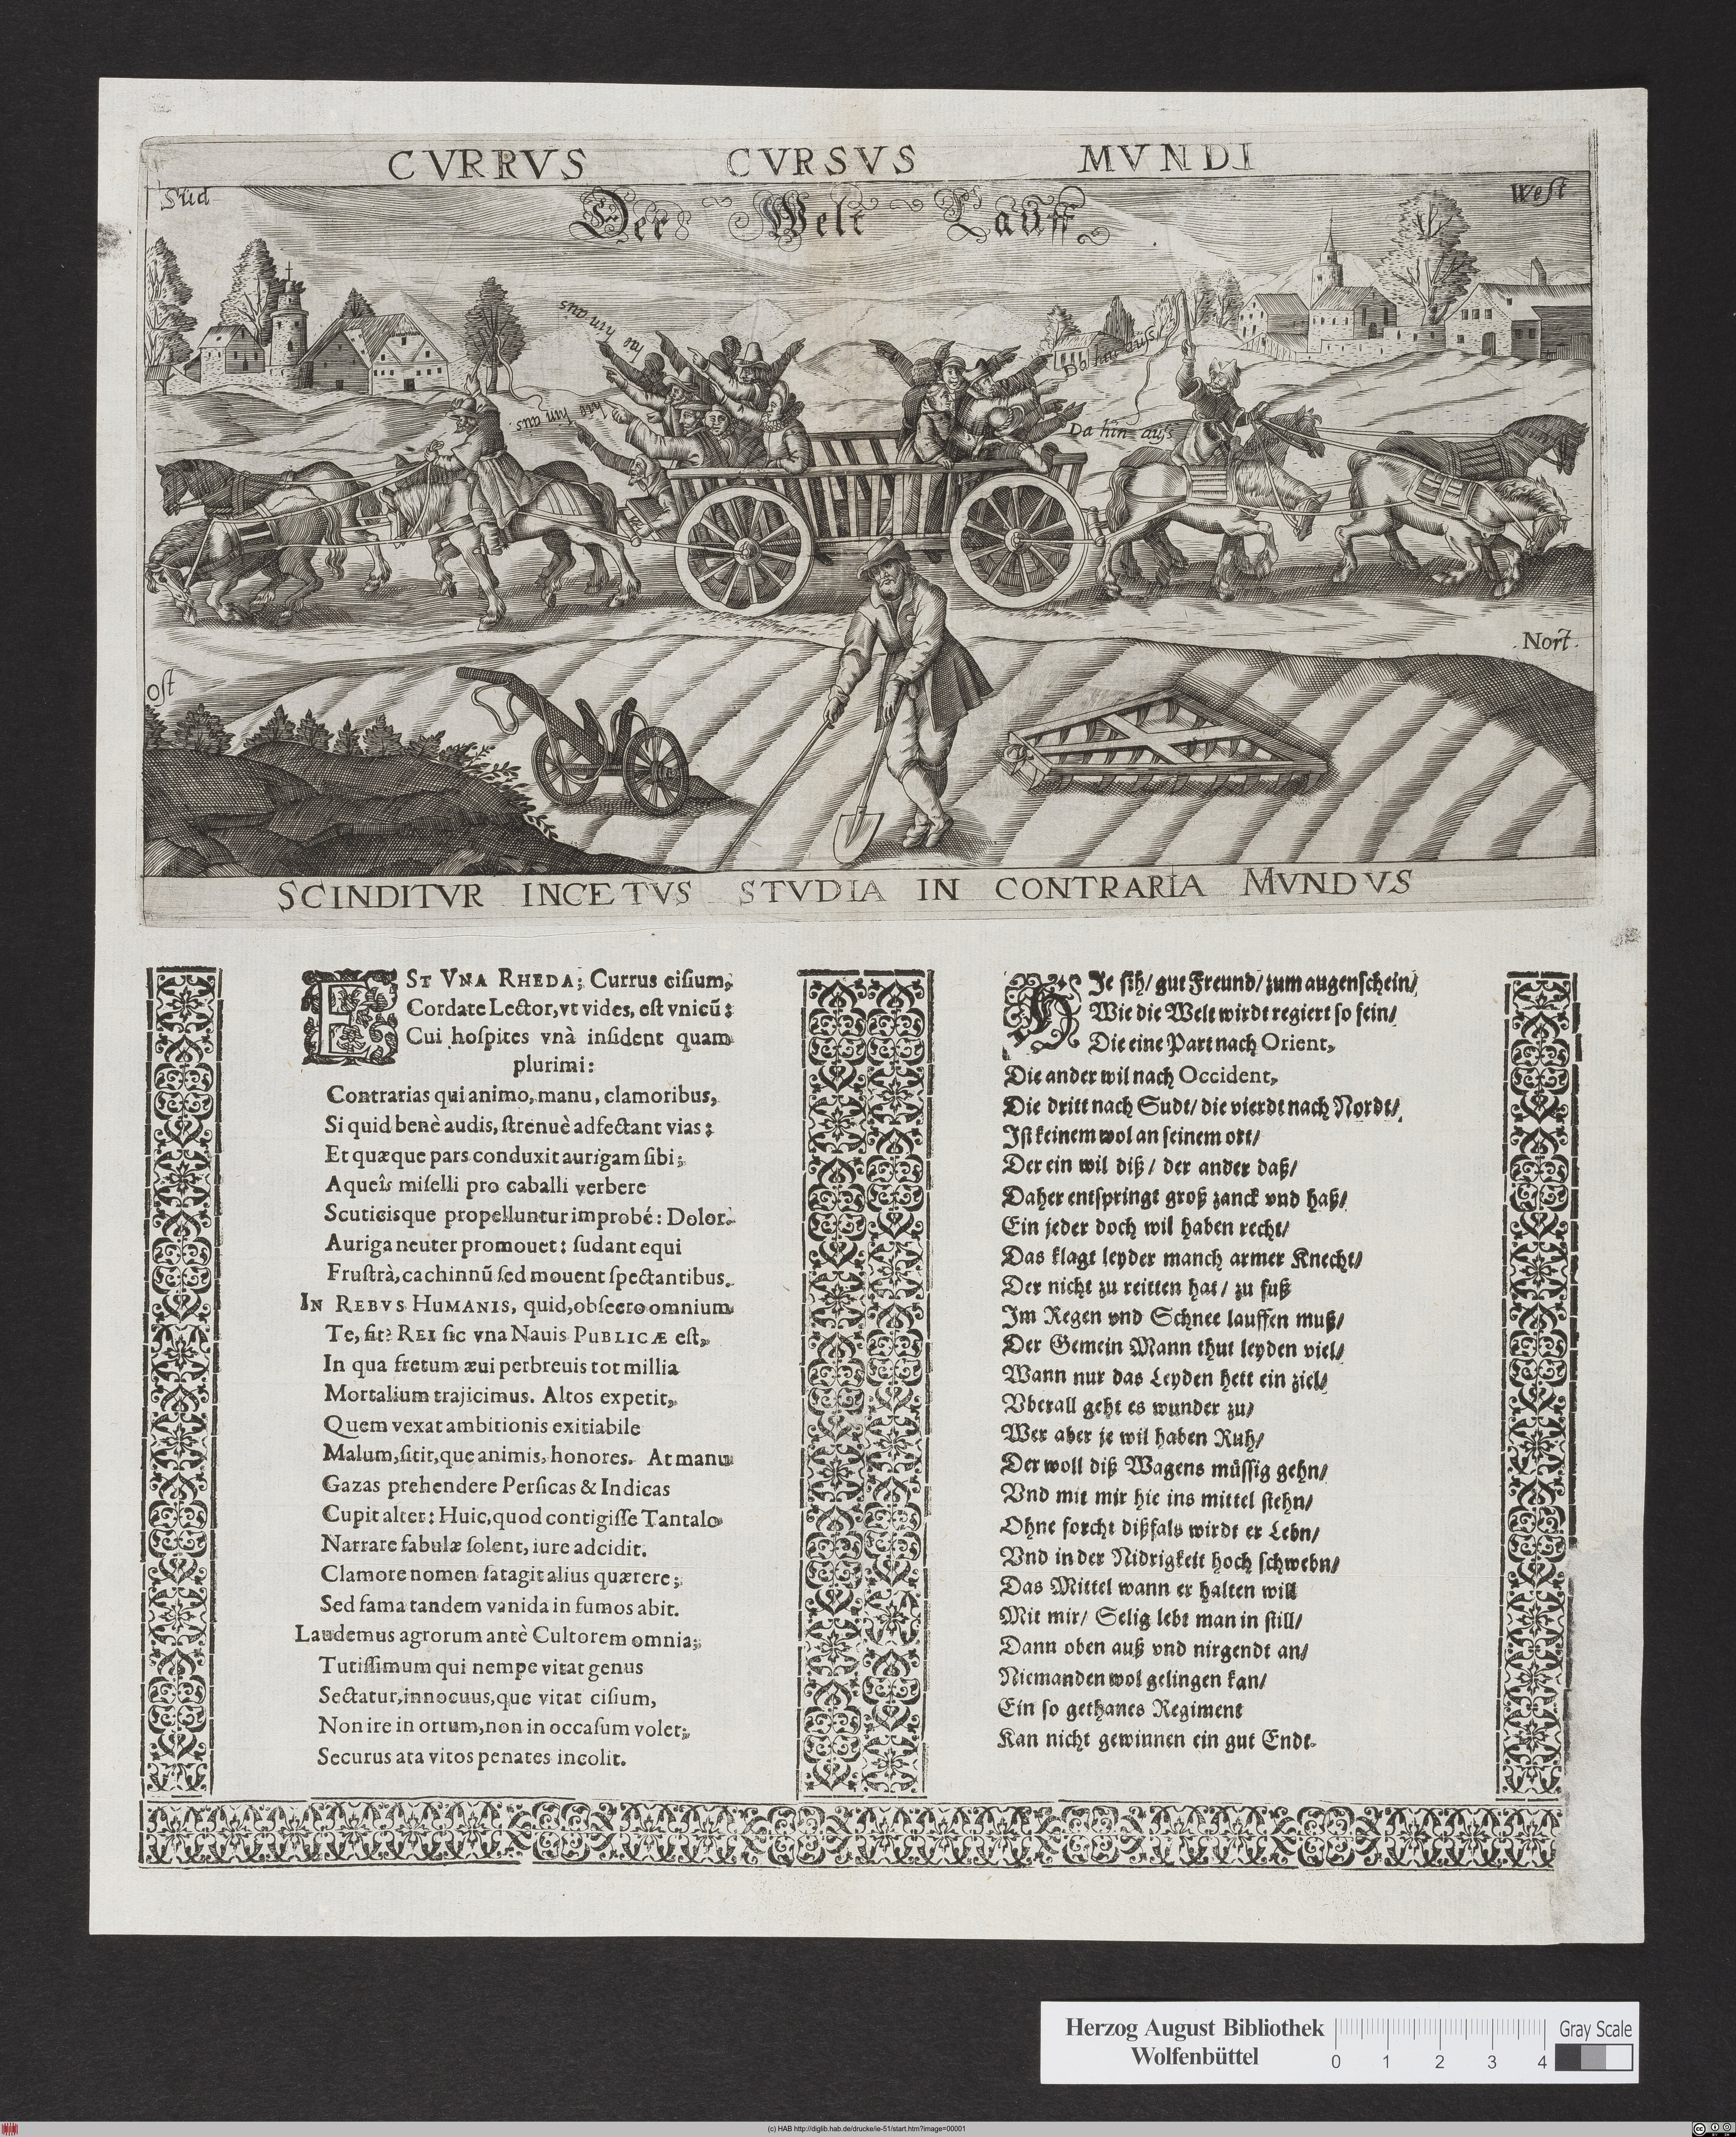 CVRRVS CVRSVS MVNDI
Süd
West
Der Welt Lauff
hie hin aus
hie hin aus
Da hin auß
Da hin auß
Nort
Ost
SCINDITVR INCETVS STVDIA IN CONTRARIA MVNDVS
EST VNA RHEDA; Currus cisium,
Cordate Lector, vt vides, est vnicũ:
Cui hospites vnà insident quam
plurimi:
Contrarias qui animo, manu, clamoribus,
Si quid benè audis, strenuè adfectant vias:
Et quæque pars conduxit aurigam sibi;
A queîs miselli pro caballi verbere
Scuticisque propelluntur improbé: Dolor.
Auriga neuter promouet: sudant equi
Frustrà, cachinnũ sed mouent spectantibus.
IN REBVS HUMANIS, quid, obsecro omnium
Te, fit? REI sic vna Nauis PUBLICÆ est,
In qua fretum æui perbreuis tot millia
Mortalium trajicimus. Altos expetit,
Quem vexat ambitionis exitiabile
Malum, sitit, que animis, honores. At manu
Gazas prehendere Persicas & Indicas
Cupit alter: Huic, quod contigisse Tantalo
Narrare fabulæ solent, iure adcidit.
Clamore nomen satagit alius quærere;
Sed fama tandem vanida in fumos abit.
Laudemus agrorum antè Cultorem omnia;
Tutissimum qui nempe vitat genus
Sectatur, innocuus, que vitat cisium,
Non ire in ortum, non in occasum volet;
Securus ata vitos penates incolit.
HIe sih/ gut Freund/ zum augenschein/
Wie die Welt wirdt regiert so fein/
Die eine Part nach Orient,
Die ander wil nach Occident,
Die dritt nach Sudt/ die vierdt nach Nordt/
Ist keinem wol an seinem ort/
Der ein wil diß/ der ander daß/
Daher entspringt groß zanck vnd haß/
Ein jeder doch wil haben recht/
Das klagt leyder manch armer Knecht/
Der nicht zu reitten hat/ zu fuß
Im Regen vnd Schnee lauffen muß/
Der Gemein Mann thut leyden viel/
Wann nur das Leyden hett ein ziel/
Vberall geht es wunder zu/
Wer aber je wil haben Ruh/
Der woll diß Wagens müssig gehn/
Vnd mit mir hie ins mittel stehn/
Ohne forcht dißfals wirdt er Lebn/
Vnd in der Nidrigkeit hoch schwebn/
Das Mittel wann er halten will
Mit mir/ Selig lebt man in still/
Dann oben auß vnd nirgendt an/
Niemanden wol gelingen kan/
Ein so gethanes Regiment
Kan nicht gewinnen ein gut Endt.
Herzog August Bibliothek
Wolfenbüttel
0 1 2 3 4
Gray Scale
(c) HAB http://diglib.hab.de/drucke/ie-51/start.htm?image=00001